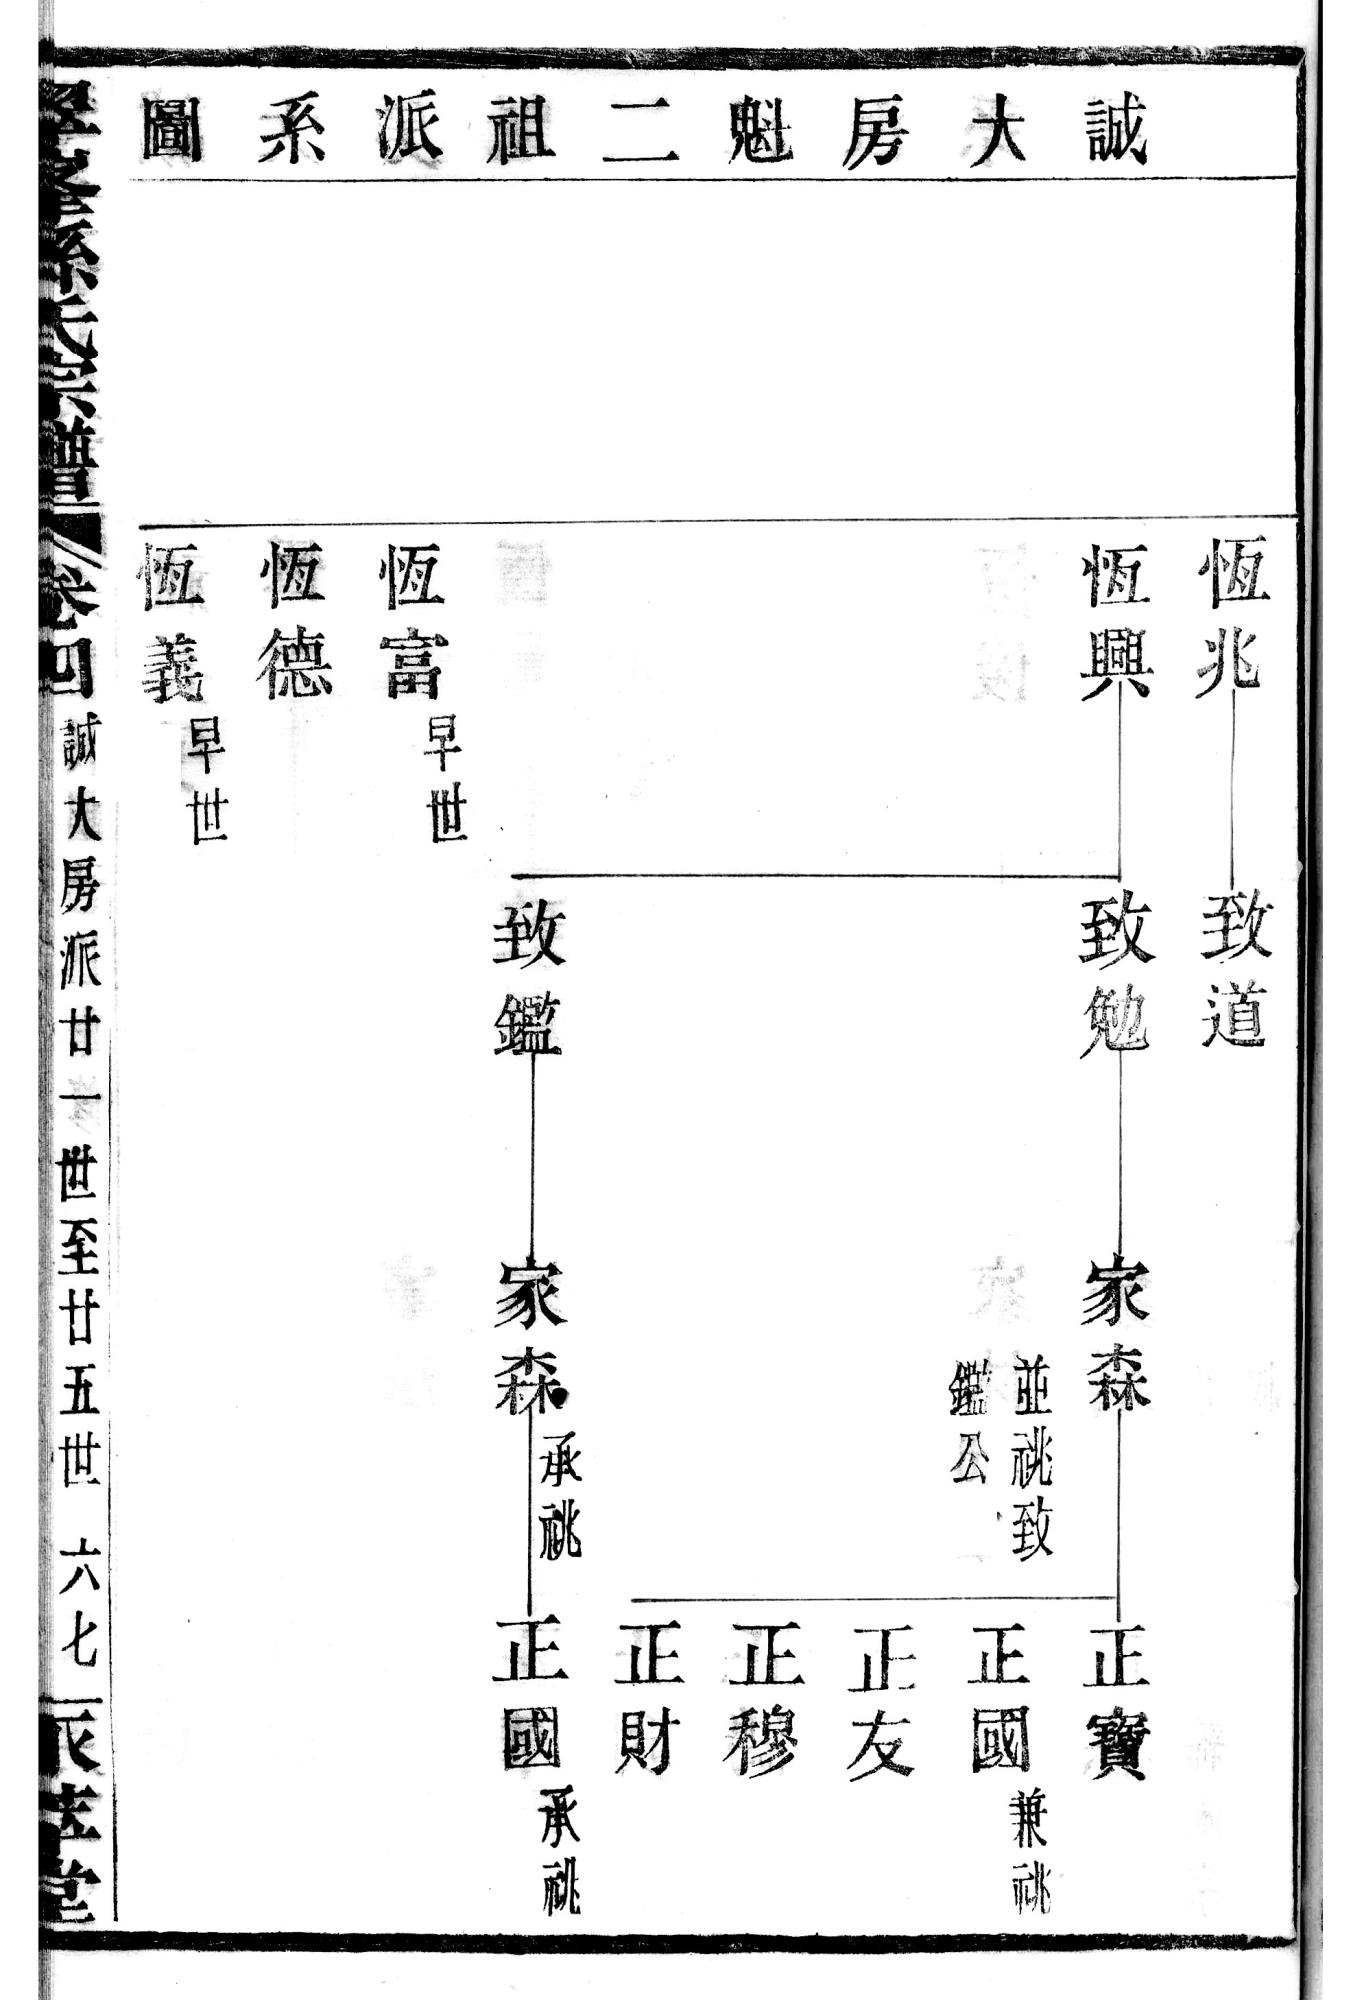 誠大房魁二祖派系圖
恆兆
恆興
恆富 早世
恆德
恆義 早世
致道
致勉
致鑑
家森 並祧致鑑公
家森 承祧
正寶
正國 兼祧
正友
正穆
正財
正國 承祧
孫氏宗譜
卷四
誠大房派廿一世至廿五世
六七
堂